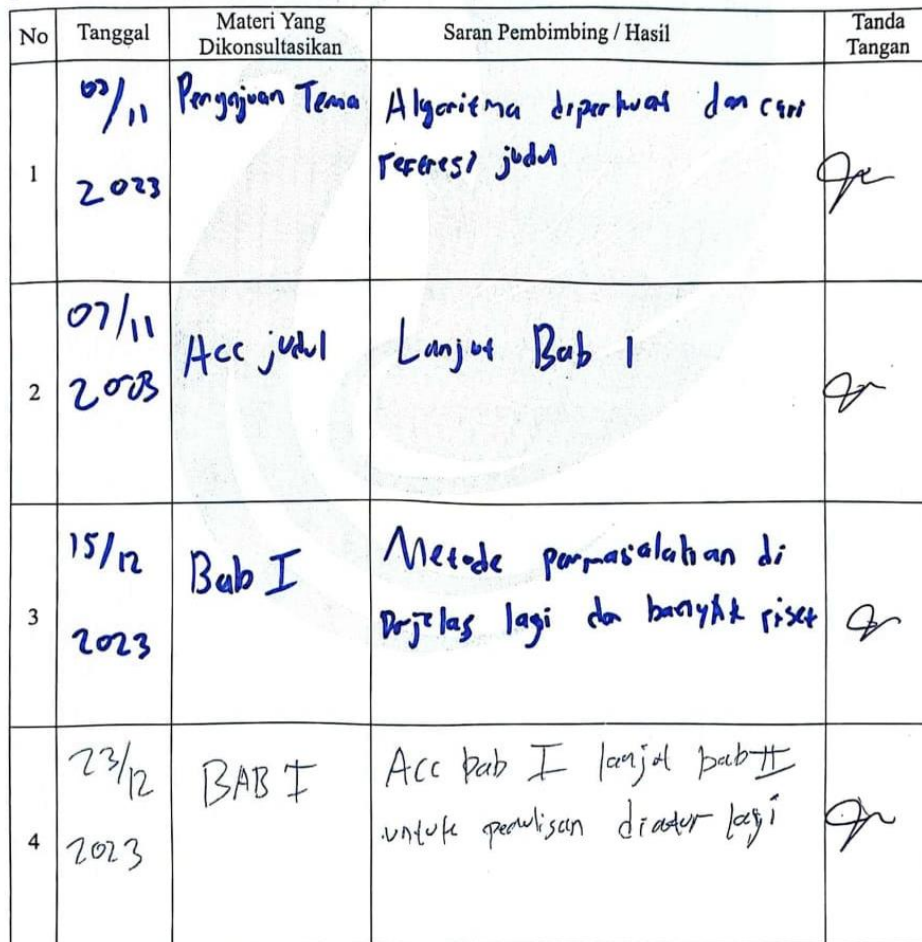 No Tanggal Materi Yang Dikonsultasikan Saran Pembimbing / Hasil Tanda Tangan
1
03/11
2023
Pengajuan Tema
Algoritma diperluas dan cari
referesi judul
2
07/11
2023
Acc judul
Lanjut Bab 1
3
15/12
2023
Bab I
Metode permasalahan di
perjelas lagi dan banyak riset
4
23/12
2023
BAB I
Acc bab I lanjut bab II
untuk penulisan diatur lagi